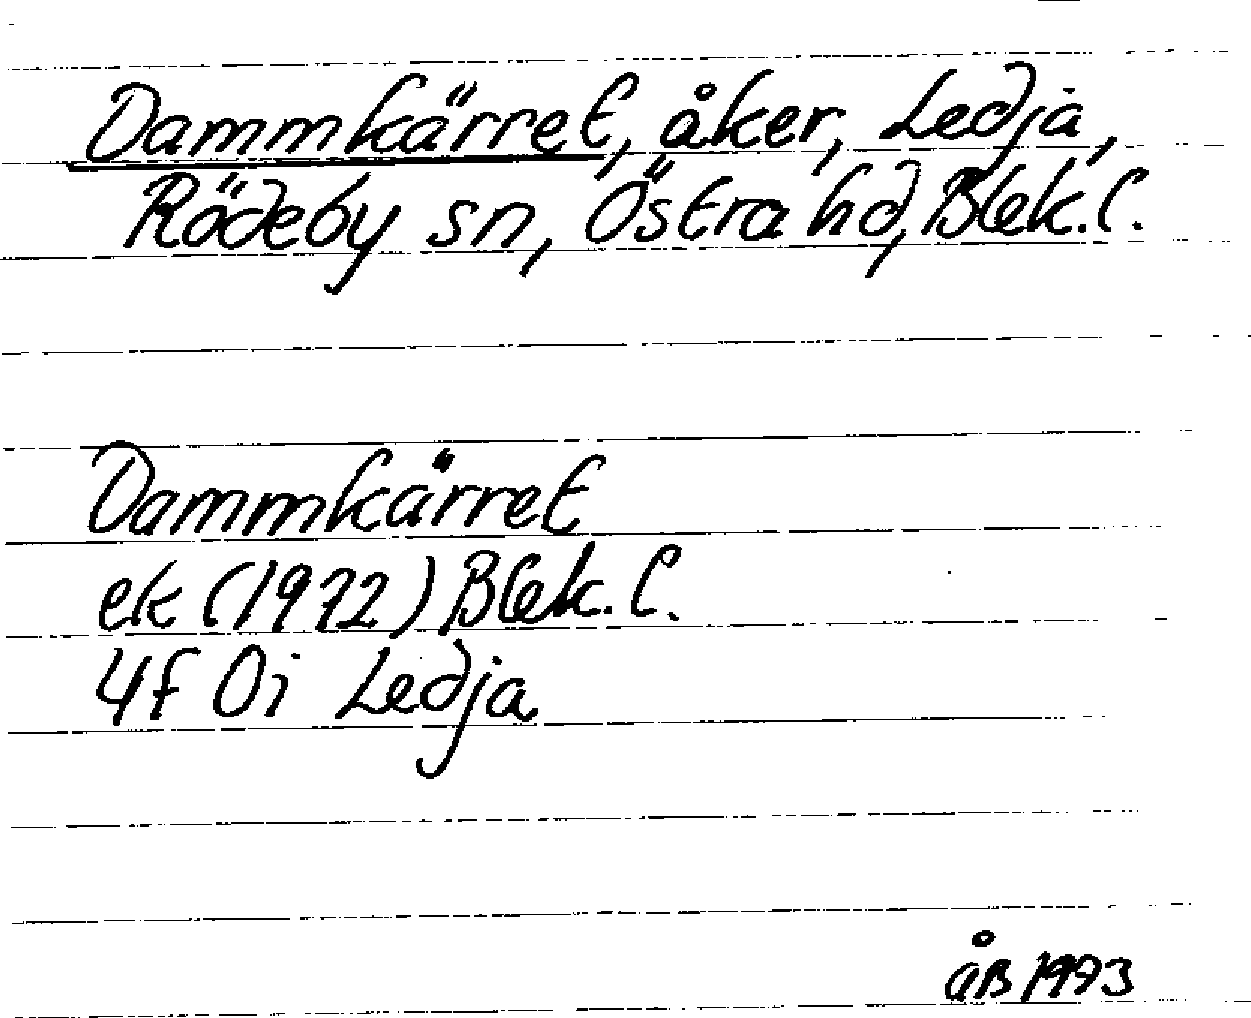 Dammkärret, åker, Ledja,
Rödeby sn, Östra hd, Blek. l.
Dammkärret
ek (1972) Blek. l.
4f 0i Ledja
åB 1993